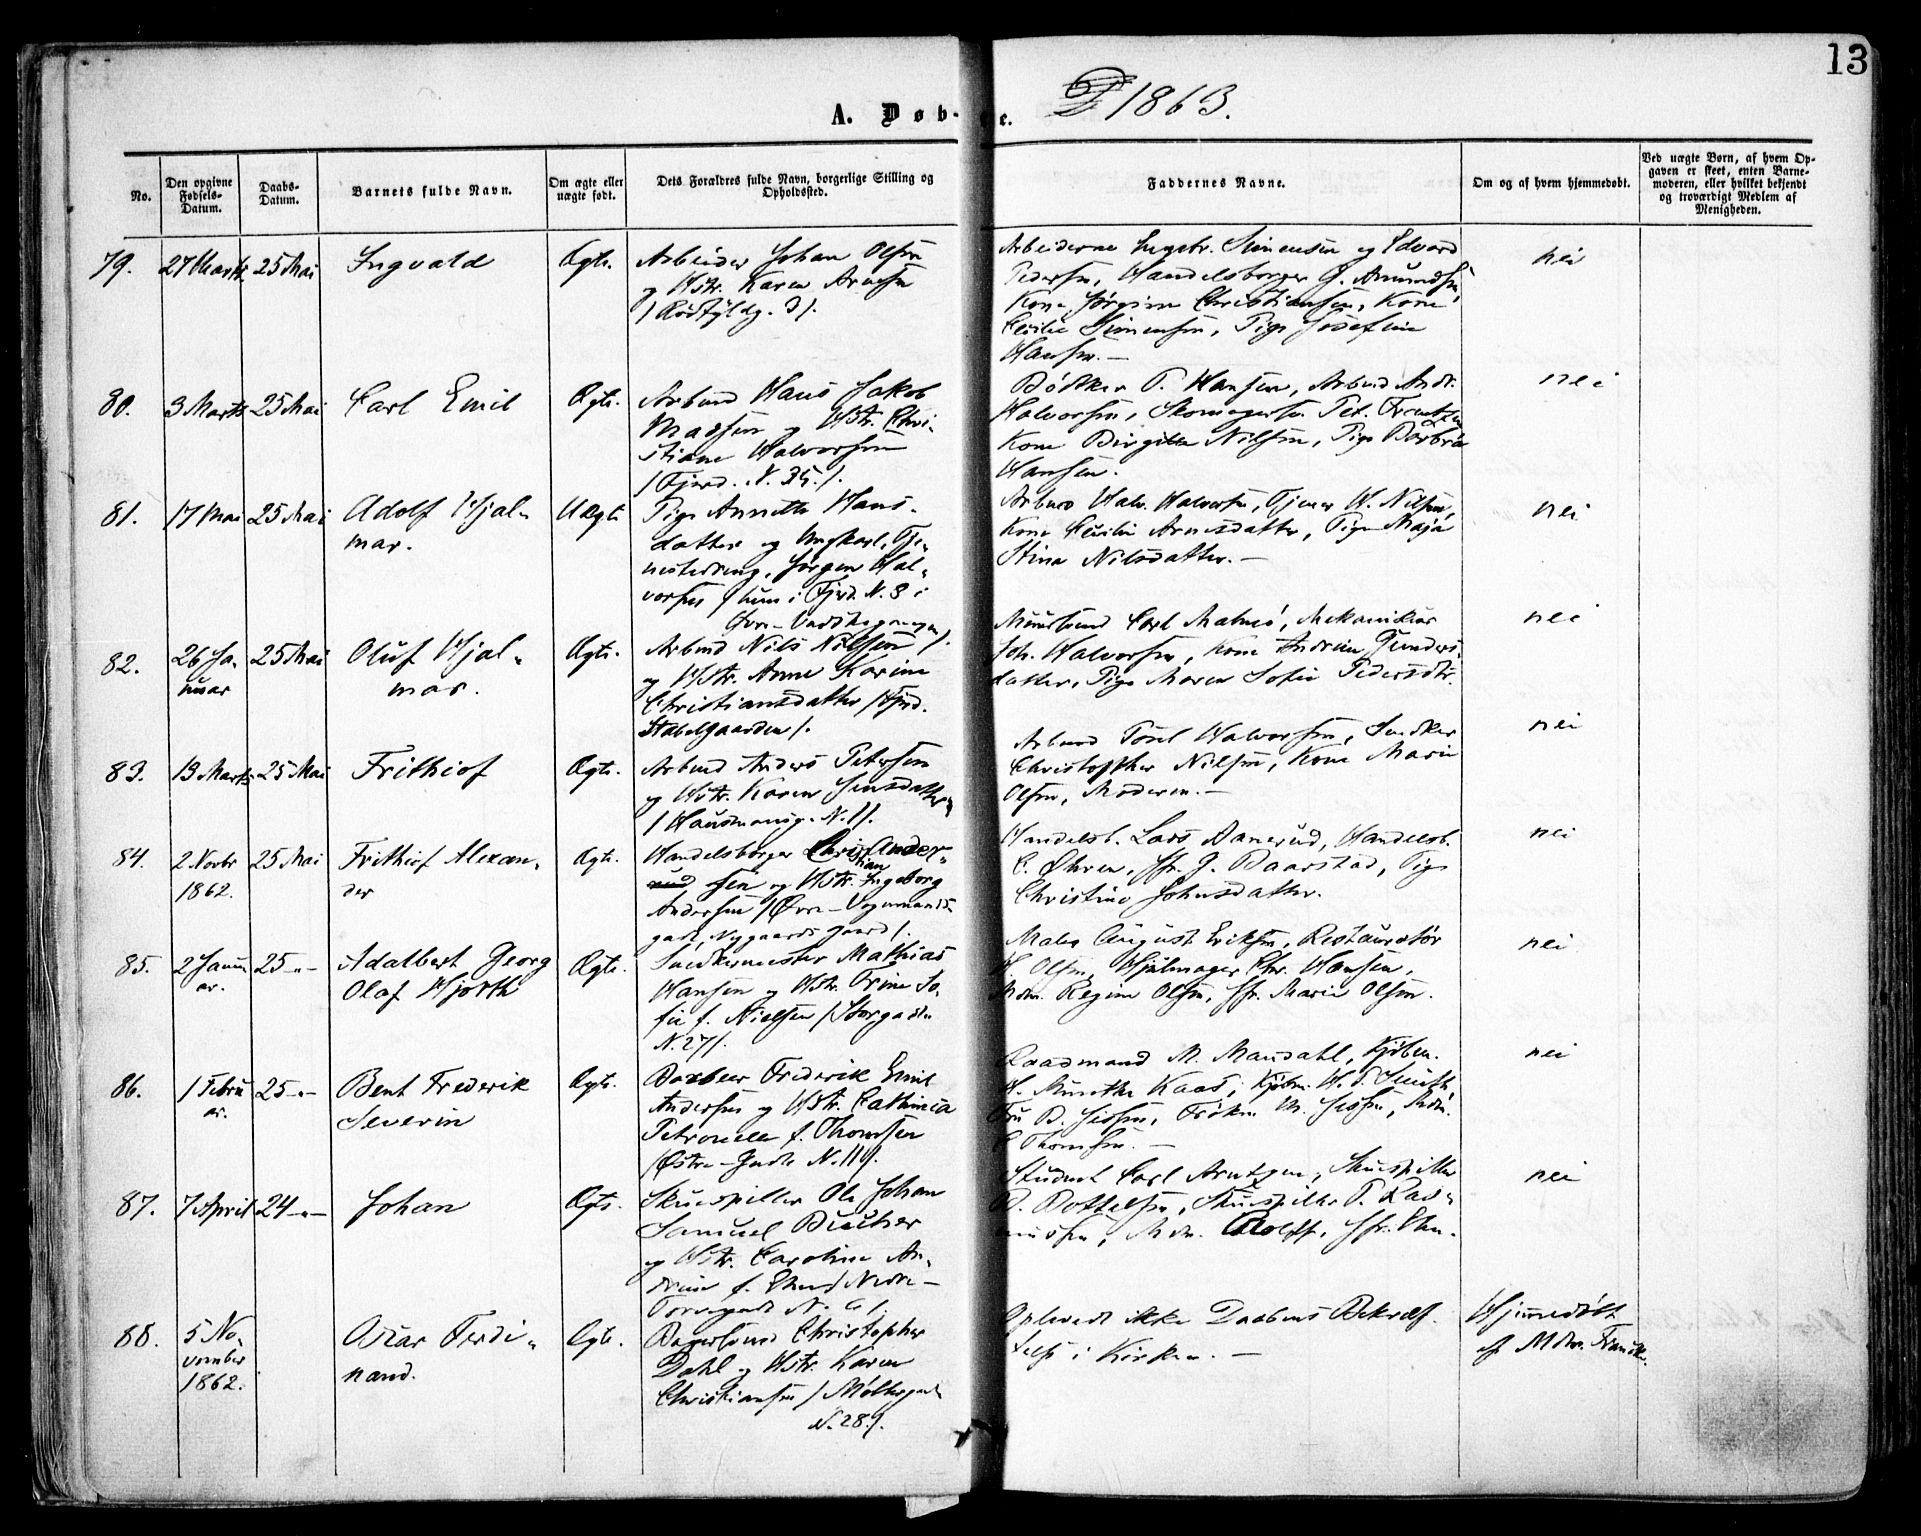 13
A. Døb- e. 1863.
No.
Den opgivne Fødsels-Datum.
Daabs-Datum.
Barnets fulde Navn.
Om ægte eller uægte født.
Dets Forældres fulde Navn, borgerlige Stilling og Opholdssted.
Faddernes Navne.
Om og af hvem hjemmedøbt.
Ved uægte Børn, af hvem Op-
gaven er skeet, enten Barne-
moderen, eller hvilket bekjendt
og troværdigt Medlem af
Menigheden.
79. 27 Marts 25 Mai Ingvald Ægte. Arbeider Johan Olsen
og Hstr. Karen
Arbeiderne Simensen og Edvard
Pedersen, Handelsborger G. Amundsen,
Kone Jørgine Christiansen, Kone
Cecilie Simensen, Pige Josefine
Hansen. —
nei
80. 3 Marts 25 Mai Carl Emil Ægte. Arbmd Hans Jakob
Madsen og Hstr. Chri-
stiane Halvorsen
/Fjerd. N. 35./.
Bødker P. Hansen, Arbmd Andr.
Halvorsen, Skomagersv. Pet. Frantzen
Kone Birgitte Nilsen, Pige Barbra
Hansen.
nei
81. 17 Mai 25 Mai Adolf Hjal-
mar.
Uægte Pige Annette Hans-
datter og Ungkarl, Tje-
nestedreng, Jørgen Hal-
vorsen /hun i Fjerd. N. 8 i
Øvre-
Arbmd Halv. Halvorsen, Tjener H. Nilsen,
Kone Cecilie Arnesdatter, Pige Maja
Stina Nilsdatter. —
nei
82. 26 Ja-
nuar
25 Mai Oluf Hjal-
mar.
Ægte. Arbmd Nils Nilsen
og Hstr. Anne Karine
Christiansdatter /Fjerd.
Stabelgaarden/.
Carl Malmø, Mekanikus
Joh. Halvorsen, Kone Andrine Gunders-
datter, Pige Maren Sofie Pedersdtr.
nei
83. 13 Marts 25 Mai Frithiof Ægte. Arbmd Anders Petersen
og Hstr. Karen Jensdatter
/Hausmansg. N. 1/.
Arbmd Poul Halvorsen, Snedker
Christopher Nilsen, Kone Marie
Olsen, Moderen. —
nei
84. 2 Novbr
1862.
25 Mai Frithiof Alexan-
der
Ægte. Handelsborger Christian Ander-
sen og Hstr. Ingeborg
Andersen /Øvre-Vognmands-
gade, Nygaards Gaard/.
Handelsb. Lars Danerud, Handelsb.
C. Øhren, Jfr. J. Baarstad, Pige
Christine Johnsdatter.
nei
85. 2 Janu-
ar.
25 -„- Adalbert Georg
Olaf Hjorth
Ægte. Snedkermester Mathias
Hansen og Hstr. Trine So-
fie f. Nielsen /Storgaden
N. 27/.
Maler August Eriksen, Restauratør
H. Olsen, Hjulmager Chr. Hansen,
Mdm. Regine Olsen, Jfr. Marie Olsen.
nei
86. 1 Febru
ar.
25 -„- Bent Frederik
Severin
Ægte. Barbeer Frederik Emil
Andersen og Hstr. Cathinca
Petronelle f. Thomsen
/Østre-Gade N. 11/.
Raadmand M. Mandahl, Kjøbm.
H. Munthe Kaas, Kjøbm. H. S. Smith,
Fru B. Jessen, Frøken M. Jessen, Mdm.
C. Thomsen. —
nei
87. 7 April 24 -„- Johan Ægte. Skuespiller Ole Johan
Samuel Bucher
og Hstr. Caroline An-
drine f. /Nedre-
Torvegade N. 6/.
Student Carl Arntzen, Skuespiller
B. Bottelsen, Skuespiller P. Ras-
mussen, Mdm. Rolff,
nei
88. 5 No-
vember
1862.
Oscar Ferdi-
nand.
Ægte. Bagersvend Christopher
Dahl og Hstr. Karen
Christiansen /Møllergade
N. 28/.
Oplevede ikke Daabens Bekræf-
telse i Kirken. —
Hjemmedøbt
af Mdm.